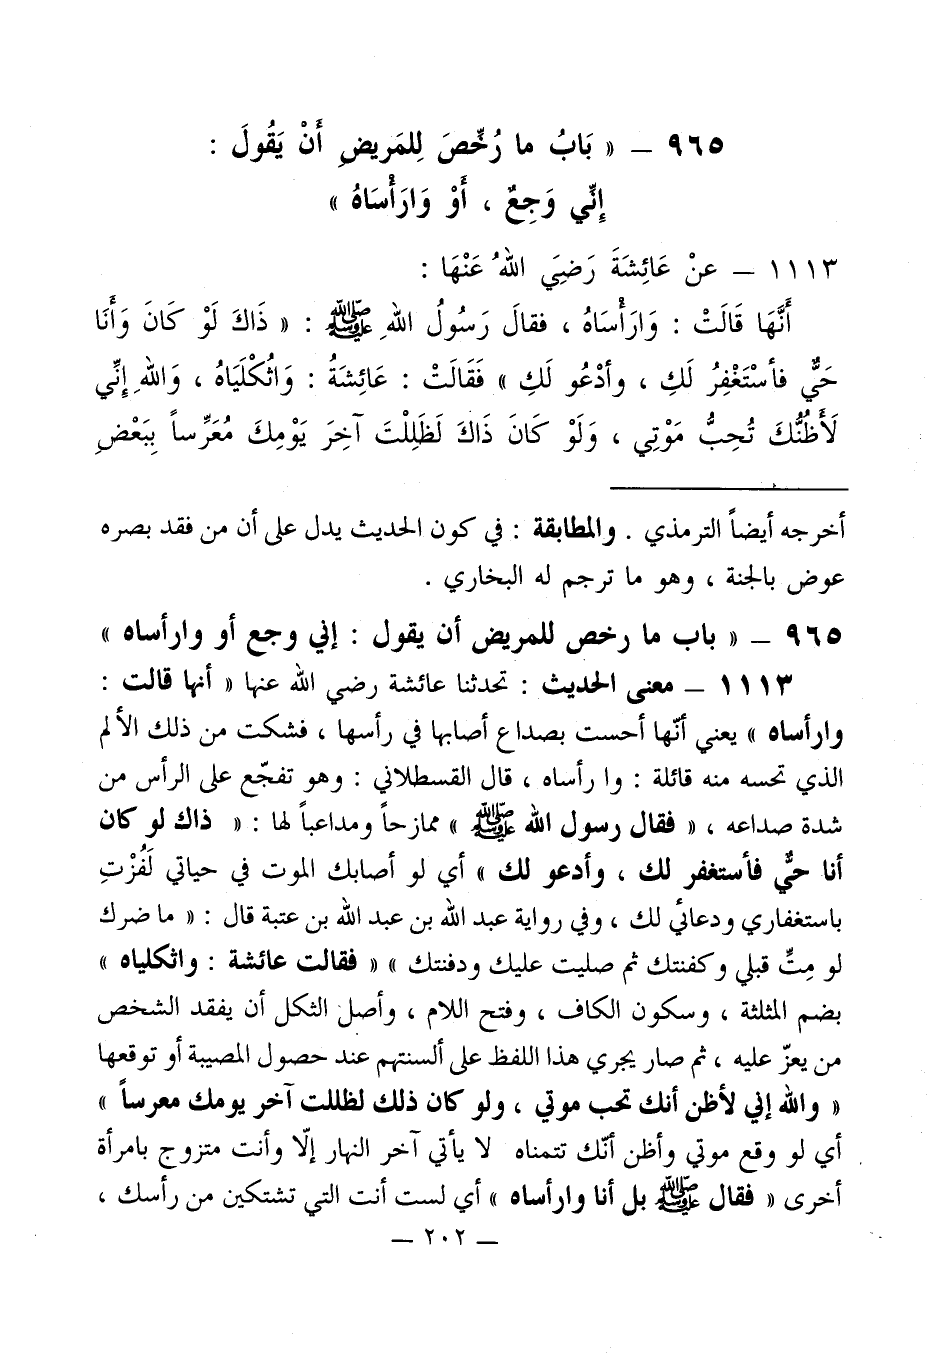 ٩٦٥ – « بَابُ ما رُخِّصَ لِلمَريضِ أَنْ يَقُولَ :
إِنِّي وَجِعٌ ، أَوْ وَارَأْسَاهُ »
١١١٣ – عنْ عَائِشَةَ رَضِيَ اللهُ عَنْهَا :
أَنَّهَا قَالَتْ : وَارَأْسَاهُ ، فقالَ رَسُولُ اللهِ ﷺ : « ذَاكَ لَوْ كَانَ وَأَنَا
حَيٌّ فأسْتَغْفِرُ لَكِ ، وأدْعُو لَكِ » فَقَالَتْ : عَائِشَةُ : وَاثُكْلَيَاهُ ، وَاللهِ إِنِّي
لَأَظُنُّكَ تُحِبُّ مَوْتِي ، وَلَوْ كَانَ ذَاكَ لَظَلِلْتَ آخِرَ يَوْمِكَ مُعَرِّساً بِبَعْضِ
أخرجه أيضاً الترمذي . والمطابقة : في كون الحديث يدل على أن من فقد بصره
عوض بالجنة ، وهو ما ترجم له البخاري .
٩٦٥ – « باب ما رخص للمريض أن يقول : إني وجع أو وارأساه »
١١١٣ – معنى الحديث : تحدثنا عائشة رضي الله عنها « أنها قالت :
وارأساه » يعني أنّها أحست بصداع أصابها في رأسها ، فشكت من ذلك الألم
الذي تحسه منه قائلة : وا رأساه ، قال القسطلاني : وهو تفجّع على الرأس من
شدة صداعه ، « فقال رسول الله ﷺ » ممازحاً ومداعباً لها : « ذاك لو كان
أنا حيٌّ فأستغفر لك ، وأدعو لك » أي لو أصابك الموت في حياتي لَفُزْتِ
باستغفاري ودعائي لك ، وفي رواية عبد الله بن عبد الله بن عتبة قال : « ما ضرك
لو مِتِّ قبلي وكفنتك ثم صليت عليك ودفنتك » « فقالت عائشة : واثكلياه »
بضم المثلثة ، وسكون الكاف ، وفتح اللام ، وأصل الثكل أن يفقد الشخص
من يعزّ عليه ، ثم صار يجري هذا اللفظ على ألسنتهم عند حصول المصيبة أو توقعها
« والله إني لأظن أنك تحب موتي ، ولو كان ذلك لظللت آخر يومك معرساً »
أي لو وقع موتي وأظن أنّك تتمناه لا يأتي آخر النهار إلّا وأنت متزوج بامرأة
أخرى « فقال ﷺ بل أنا وارأساه » أي لست أنت التي تشتكين من رأسك ،
– ٢٠٢ –